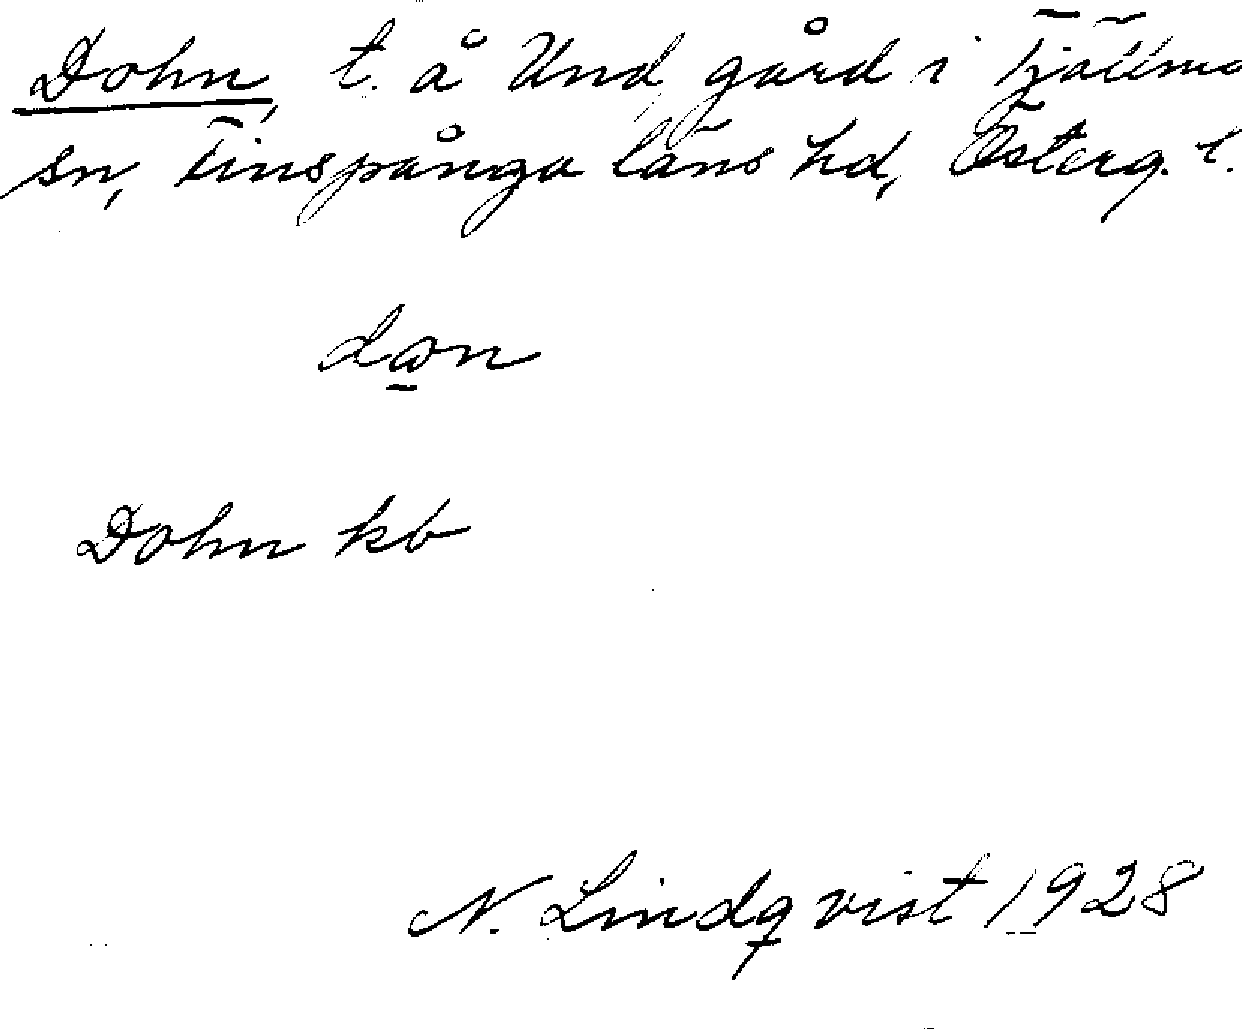 Dohn, t. å Und, gård i Tjällmo
sn, Finspånga läns hd, Österg. l.
dωn
Dohn kb
N. Lindqvist 1928